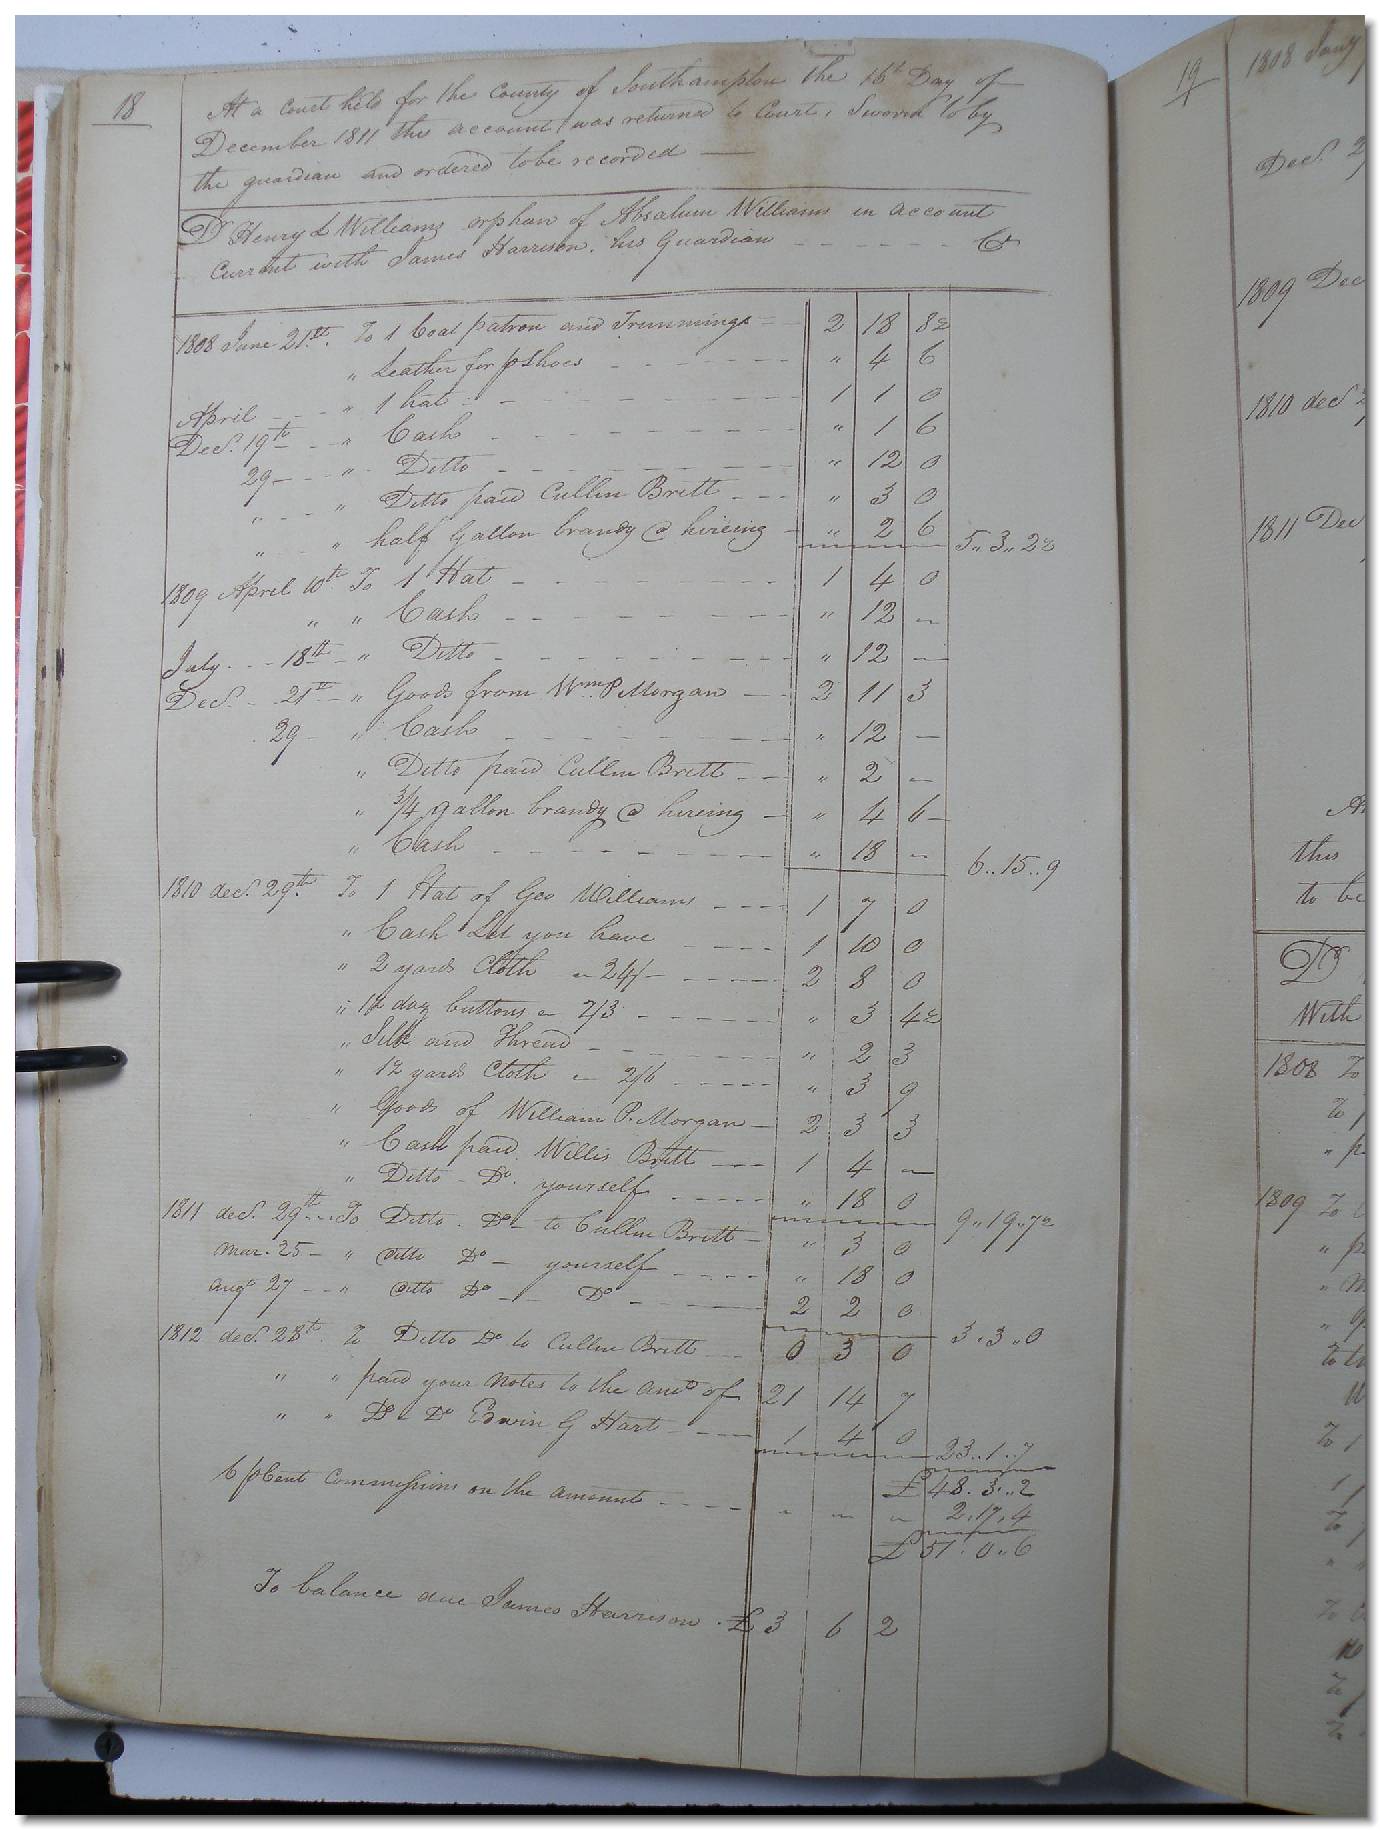 18
At a Court held for the County of Southampton the 16th Day of
December 1811 this account was returned to Court, Sworn to by
the guardian and ordered to be recorded —
Dr Henry L Williams orphan of Absalum Williams in account
Current with James Harrison his Guardian - - - - - - Cr
1808 June 21st. To 1 Coat patron and Trimmings - - 2 18 8½
" Leather for pShoes - - - - " 4 6
April - - - " 1 hat - - - - 1 1 0
Decr. 19th - - " Cash - - - - " 1 6
29 - - - " Ditto - - - - " 12 0
" - - " Ditto paid Cullin Britt - - - " 3 0
" - - " half Gallon brandy @ hireing - " 2 6 5,, 3,, 2½
1809 April 10th To 1 Hat - - - - 1 4 0
" " Cash - - - - " 12 —
July - - - 18th - " Ditto - - - - " 12 —
Decr. - 21st - " Goods from Wm P Morgan - - 2 11 3
29 - " Cash - - - - " 12 —
" Ditto paid Cullin Britt - - - " 2 —
" 3/4 gallon brandy @ hireing - " 4 6 —
" Cash - - - - " 18 — 6..15..9
1810 decr. 29th. To 1 Hat of Geo Williams - - - 1 7 0
" Cash Let you have - - - 1 10 0
" 2 yards Cloth @ 24/- - - - 2 8 0
" 1½ doz buttons @ 2/3 - - - - " 3 4½
" Silk and Thread - - - - " 2 3
" 1½ yards Cloth @ 2/6 - - - - " 3 9
" Goods of William P. Morgan - 2 3 3
" Cash paid Willis Britt - - - 1 4 —
" Ditto - Do. yourself - - - - " 18 0 9,, 19,, 7½
1811 decr. 29th - - To Ditto - Do - to Cullin Britt - " 3 0
Mar. 25 - " Ditto Do - yourself - - - - " 18 0
augt 27 - - " Ditto Do - - Do - - - - 2 2 0 3,, 3,, 0
1812 decr. 28th To Ditto Do to Cullin Britt - - 0 3 0
" " paid your Notes to the amt of 21 14 7
" " Do - Do Edwin G Hart - - - 1 4 0 23..1..7
£48. 3..2
6 pCent Commissions on the amount - - - - " — — 2.17.4
£51. 0.. 6
To balance due James Harrison. £3 6 2
19
1808 Jany
Decr. 2
1809 Dec
1810 decr 2
1811 Dec
this
to be
Dr
With
1808 To
To
" p
1809 To
" p
" M
"
To
To 1
1
To
"
To
To
To